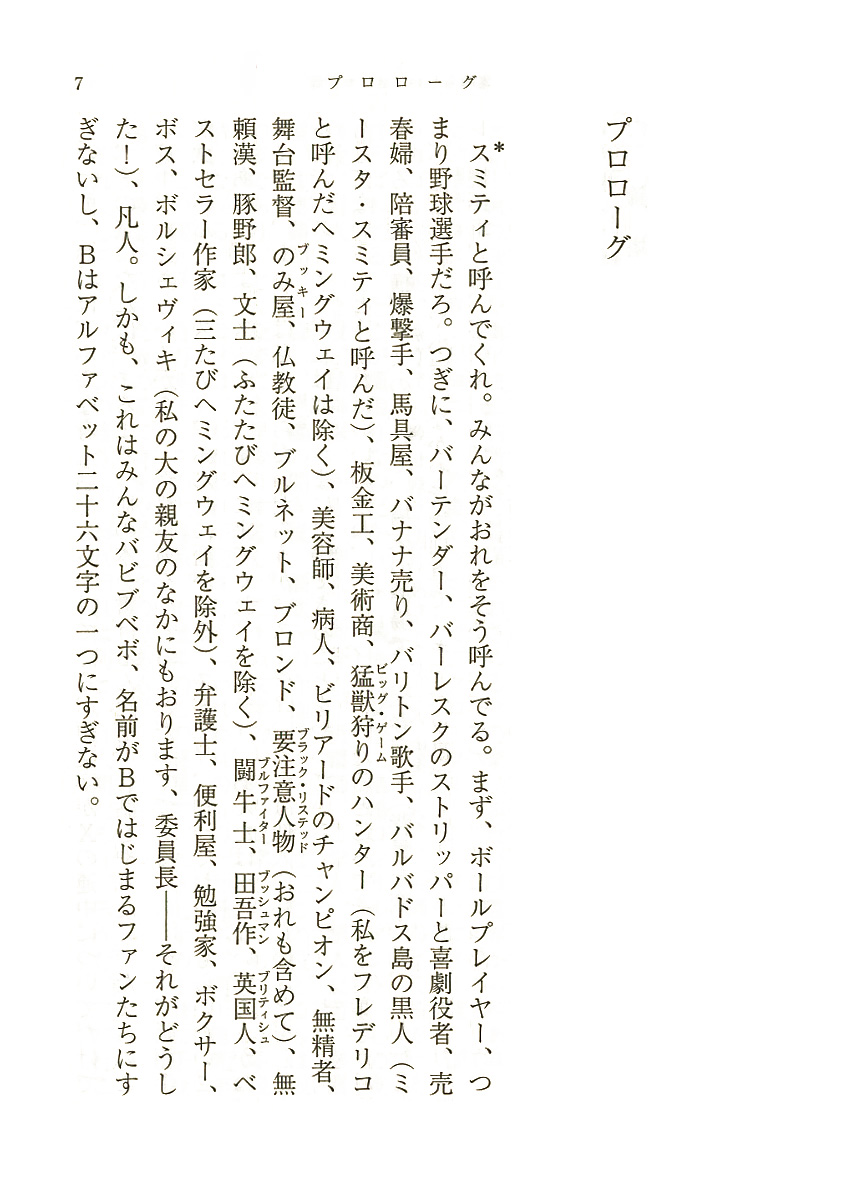 7
プロローグ
プロローグ
*スミティと呼んでくれ。みんながおれをそう呼んでる。まず、ボールプレイヤー、つ
まり野球選手だろ。つぎに、バーテンダー、バーレスクのストリッパーと喜劇役者、売
春婦、陪審員、爆撃手、馬具屋、バナナ売り、バリトン歌手、バルバドス島の黒人（ミ
ースタ・スミティと呼んだ）、板金工、美術商、猛獣狩りのハンター（私をフレデリコ
ビッグ・ゲーム
と呼んだヘミングウェイは除く）、美容師、病人、ビリアードのチャンピオン、無精者、
舞台監督、のみ屋、仏教徒、ブルネット、ブロンド、要注意人物（おれも含めて）、無
ブッキー
ブラック・リステッド
頼漢、豚野郎、文士（ふたたびヘミングウェイを除く）、闘牛士、田吾作、英国人、ベ
ブルファイター
ブッシュマン
ブリティシュ
ストセラー作家（三たびヘミングウェイを除外）、弁護士、便利屋、勉強家、ボクサー、
ボス、ボルシェヴィキ（私の大の親友のなかにもおります、委員長――それがどうし
た！）、凡人。しかも、これはみんなバビブベボ、名前がBではじまるファンたちにす
ぎないし、Bはアルファベット二十六文字の一つにすぎない。